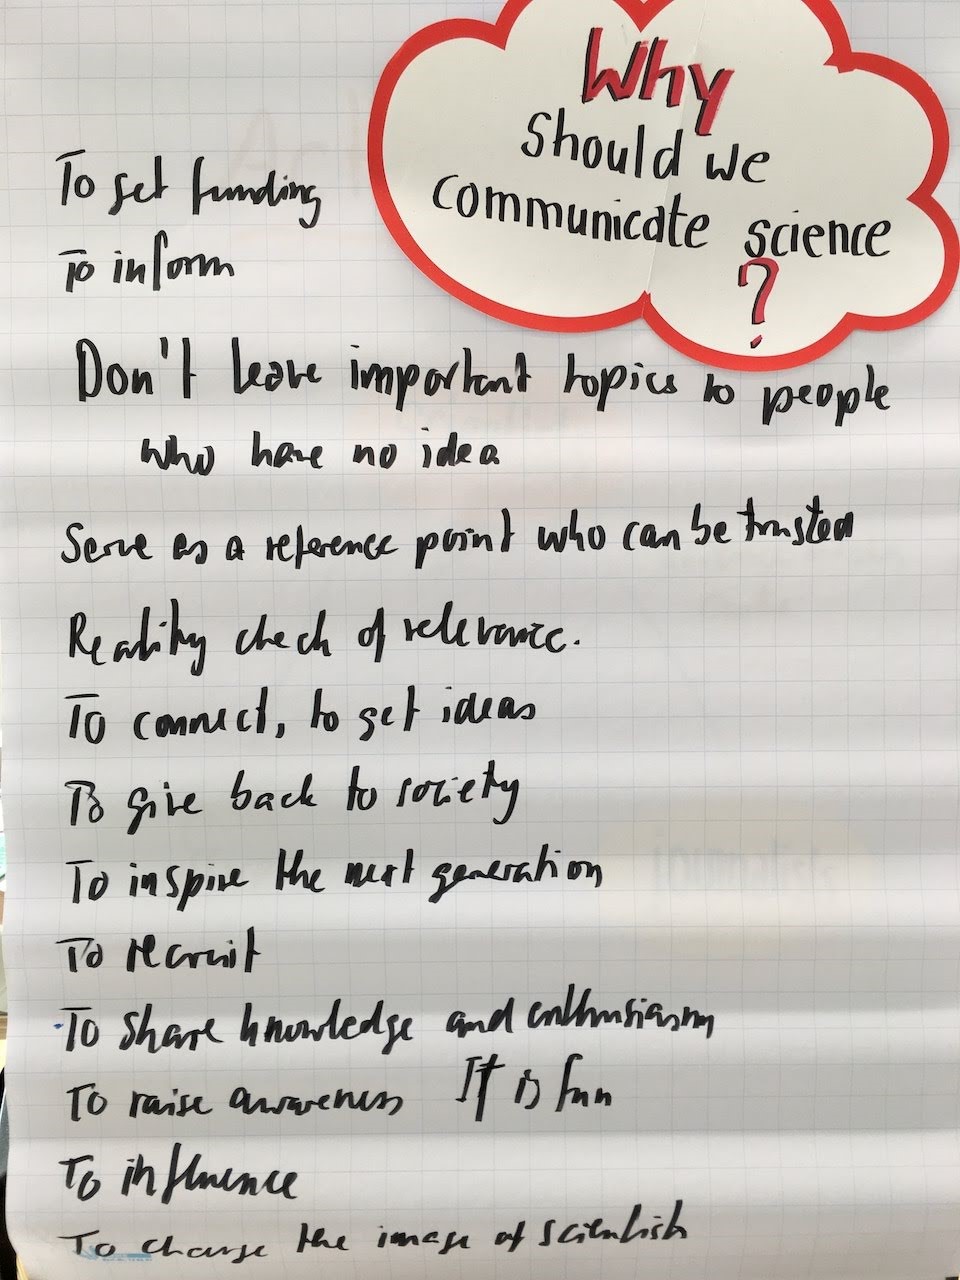 Why
should we
communicate science
?
To get funding
To inform
Don't leave important topics to people
who have no idea
Serve as a reference point who can be trusted
Reality check of relevance.
To connect, to get ideas
To give back to society
To inspire the next generation
To recruit
To share knowledge and enthusiasm
To raise awareness It is fun
To influence
To change the image of scientists